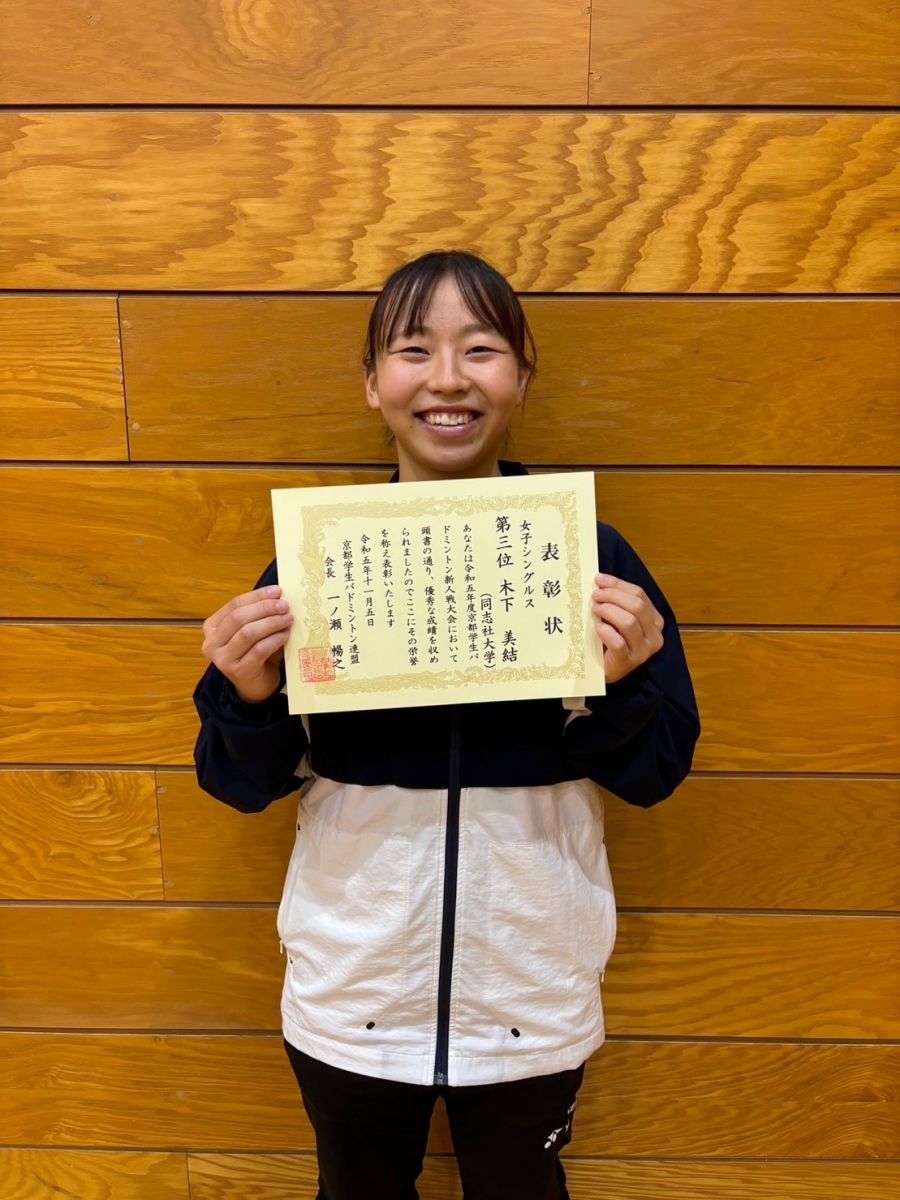 表彰状
女子シングルス
第三位 木下 美結
(同志社大学)
あなたは令和五年度京都学生バ
ドミントン新人戦大会において
頭書の通り、優秀な成績を収め
られましたのでここにその栄誉
を称え表彰いたします
令和五年十一月五日
京都学生バドミントン連盟
会長 一ノ瀬 暢之